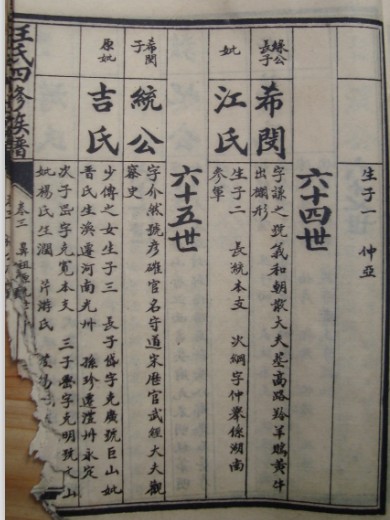 生子一 仲亞
六十四世
緣公長子
希閔
字謙之號義和朝散大夫墓高路羚羊鵰黃牛
出欄形
妣
江氏
生子二 長統本支 次綱字仲舉徙湖南
參軍
六十五世
希閔子
統公
字介然號彥確官名守道宋歷官武經大夫觀
察史
原妣
吉氏
少傅之女生子三 長子岱字克廣號巨山妣
晉氏生渙遷河南光州 孫珍遷澧州永定
次子嵒字克寬本支 三子壑字克明號文山
妣楊氏生瀾 芹游氏
汪氏四修族譜
卷三